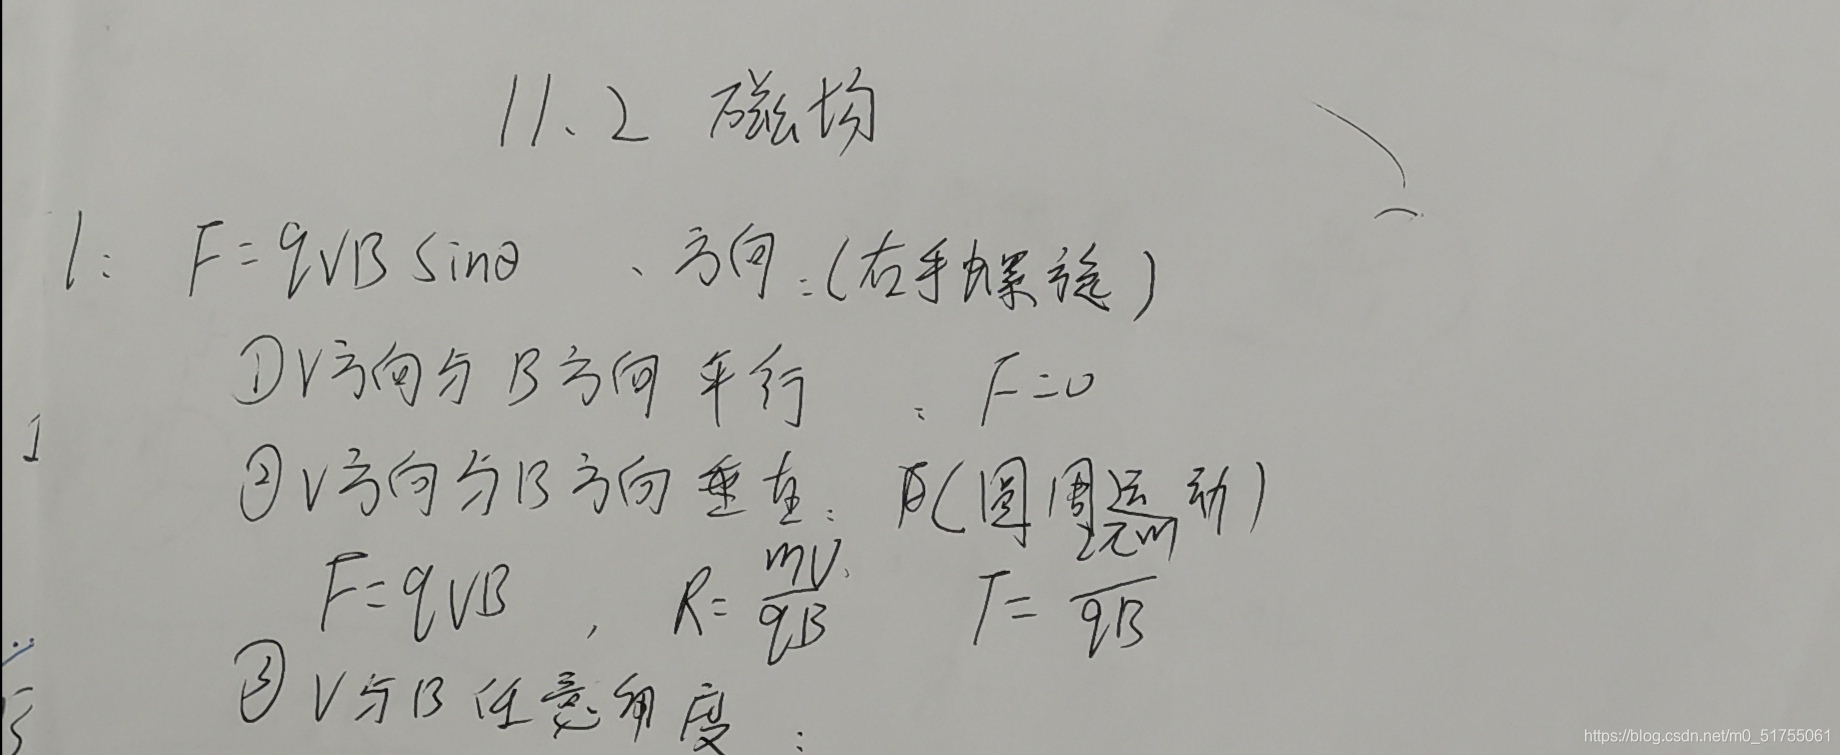 11.2 磁场
1: F=qVB sinθ 、方向:(右手螺旋)
①V方向与B方向平行 : F=0
②V方向与B方向垂直: (圆周运动)
F=qVB , R=mV/qB T=2πm/qB
③V与B任意角度:
I
https://blog.csdn.net/m0_51755061